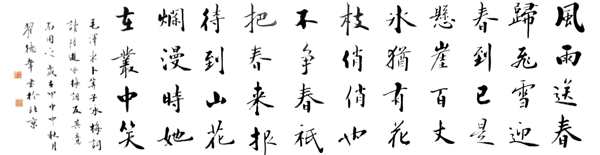 風雨送春
歸飛雪迎
春到已是
懸崖百丈
氷猶有花
枝俏俏也
不爭春祇
把春来报
待到山花
爛漫時她
在叢中笑
毛澤东卜算子咏梅詞
讀陸游咏梅詞反其意
而用之歲在甲申秋月
書於北京